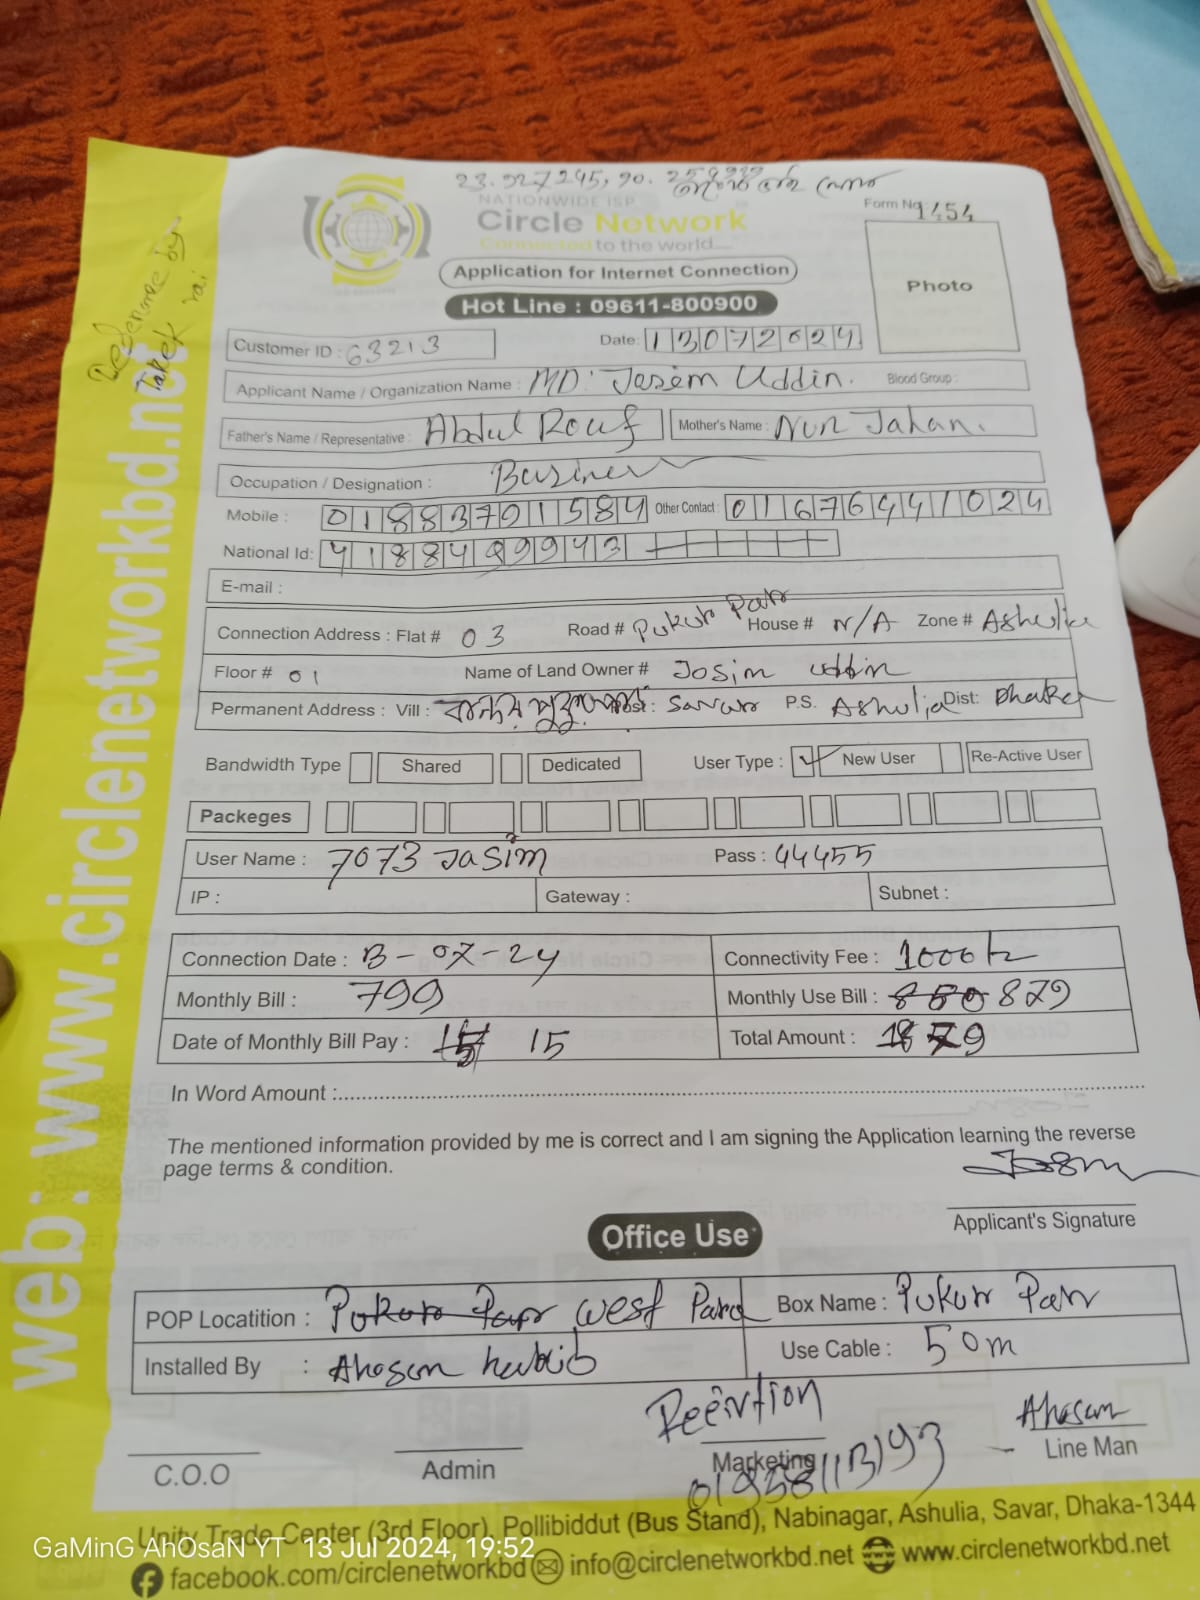 23.927245, 90.
NATIONWIDE ISP
Circle Network
Connected to the world...
Form No 1454
Application for Internet Connection
Hot Line : 09611-800900
Photo
Customer ID : 63213
Date: 13072024
Applicant Name / Organization Name : MD: Jasim Uddin. Blood Group :
Father's Name / Representative : Abdul Rouf Mother's Name : Nur Jahan.
Occupation / Designation : Business
Mobile : 01883791584 Other Contact : 01676441024
National Id: 4188499943
E-mail :
Connection Address : Flat # 03 Road # Pukur Par House # N/A Zone # Ashulia
Floor # 01 Name of Land Owner # Josim uddin
Permanent Address : Vill : Post : Savar P.S. Ashulia Dist: Dhaka
Bandwidth Type Shared Dedicated User Type : ✓ New User Re-Active User
Packeges
User Name : 7073 Jasim Pass : 44455
IP : Gateway : Subnet :
Connection Date : 13-07-24 Connectivity Fee : 1000
Monthly Bill : 799 Monthly Use Bill : 850 879
Date of Monthly Bill Pay : 15 Total Amount : 1879
In Word Amount :
The mentioned information provided by me is correct and I am signing the Application learning the reverse
page terms & condition.
Josim
Applicant's Signature
Office Use
POP Locatition : Pukur Par West Para Box Name : Pukur Par
Installed By : Ahosan habib Use Cable : 50m
Ahosan
C.O.O Admin Marketing Line Man
Unity Trade Center (3rd Floor), Pollibiddut (Bus Stand), Nabinagar, Ashulia, Savar, Dhaka-1344
facebook.com/circlenetworkbd info@circlenetworkbd.net www.circlenetworkbd.net
web: www.circlenetworkbd.net
GaMinG AhOsaN YT 13 Jul 2024, 19:52